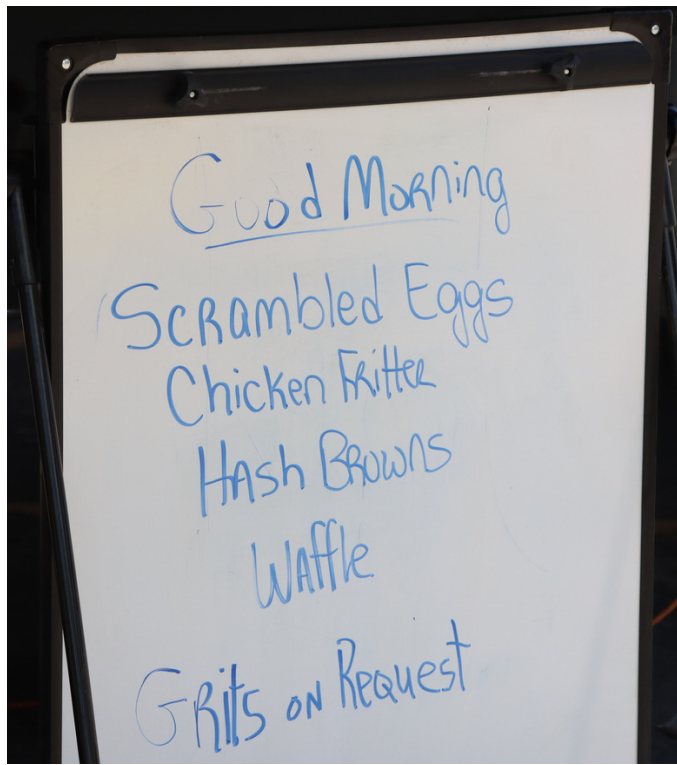 Good Morning
Scrambled Eggs
Chicken Fritter
Hash Browns
Waffle
Grits on Request